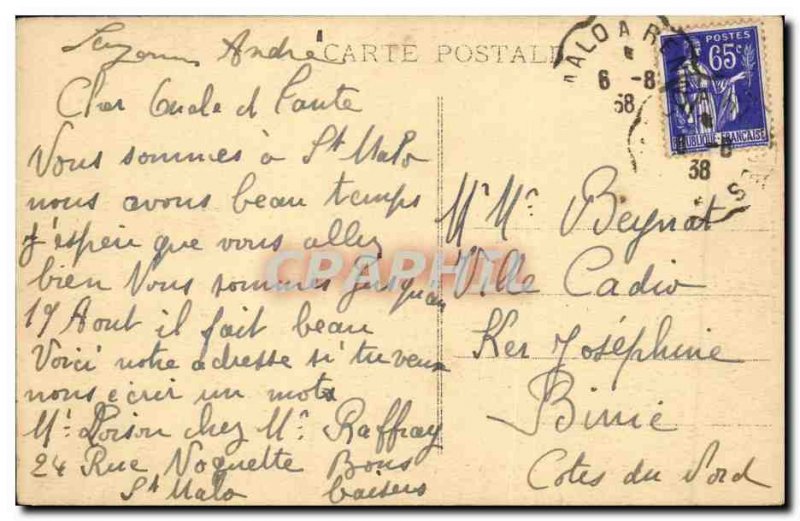 Suzanne André
CARTE POSTALE
Cher Oncle et Tante
Vous sommes à St Malo
nous avons beau temps
J'espère que vous allez
bien Nous sommes Jusqu'au
17 Aout il fait beau
Voici notre adresse si tu veux
nous écrir un mots
Mr. Poison chez Mr. Raffray
24 Rue Voguette Bons
St Malo baisers
MALO A REN
6 -8
38
POSTES
65c
REPUBLIQUE FRANÇAISE
-8
38
Mr Me Beynat
Ville Cadio
Ker Joséphine
Binic
Cotes du Nord
CPAPHIL